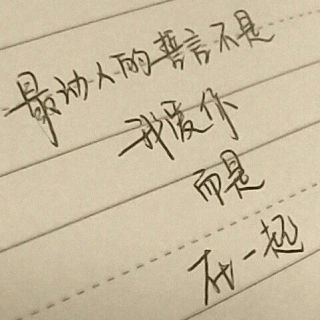 最动人的誓言不是
我爱你
而是
在一起